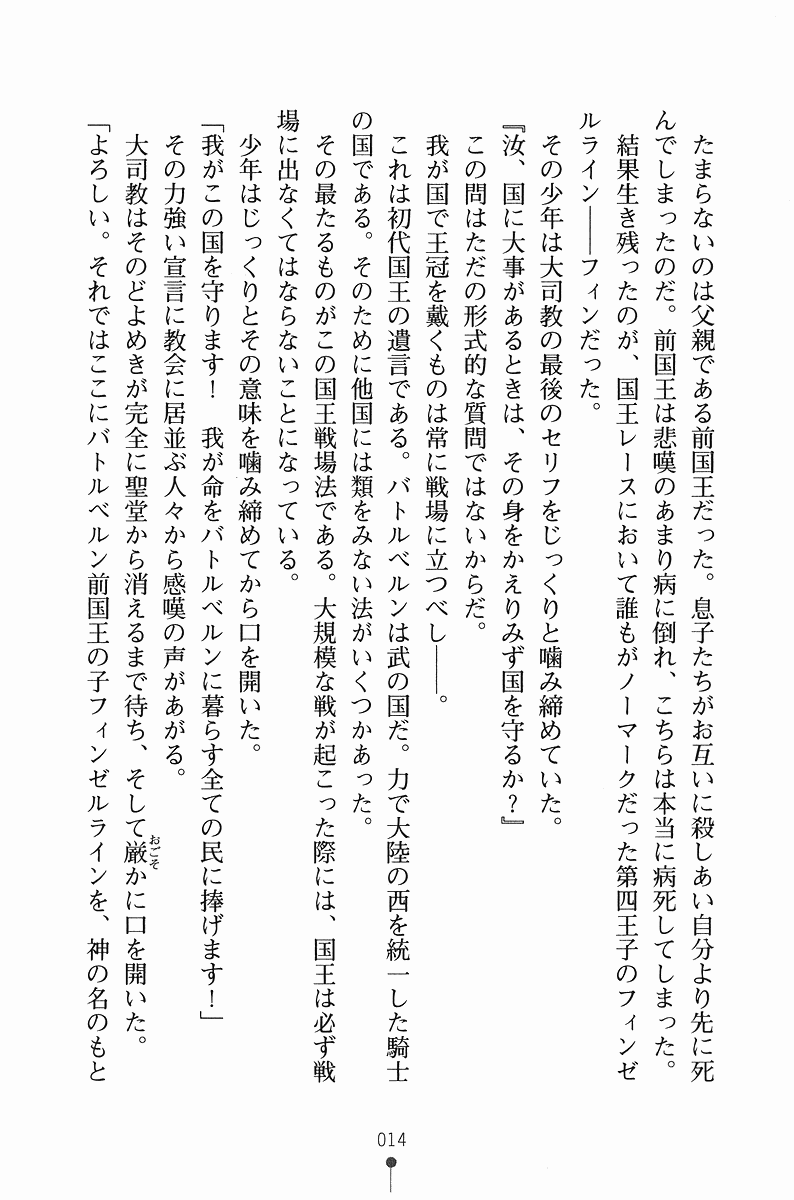 たまらないのは父親である前国王だった。息子たちがお互いに殺しあい自分より先に死
んでしまったのだ。前国王は悲嘆のあまり病に倒れ、こちらは本当に病死してしまった。
結果生き残ったのが、国王レースにおいて誰もがノーマークだった第四王子のフィンゼ
ルライン――フィンだった。
その少年は大司教の最後のセリフをじっくりと噛み締めていた。
『汝、国に大事があるときは、その身をかえりみず国を守るか？』
この問はただの形式的な質問ではないからだ。
我が国で王冠を戴くものは常に戦場に立つべし――。
これは初代国王の遺言である。バトルベルンは武の国だ。力で大陸の西を統一した騎士
の国である。そのために他国には類をみない法がいくつかあった。
その最たるものがこの国王戦場法である。大規模な戦が起こった際には、国王は必ず戦
場に出なくてはならないことになっている。
少年はじっくりとその意味を噛み締めてから口を開いた。
「我がこの国を守ります！　我が命をバトルベルンに暮らす全ての民に捧げます！」
その力強い宣言に教会に居並ぶ人々から感嘆の声があがる。
大司教はそのどよめきが完全に聖堂から消えるまで待ち、そして厳かに口を開いた。
おごそ
「よろしい。それではここにバトルベルン前国王の子フィンゼルラインを、神の名のもと
014